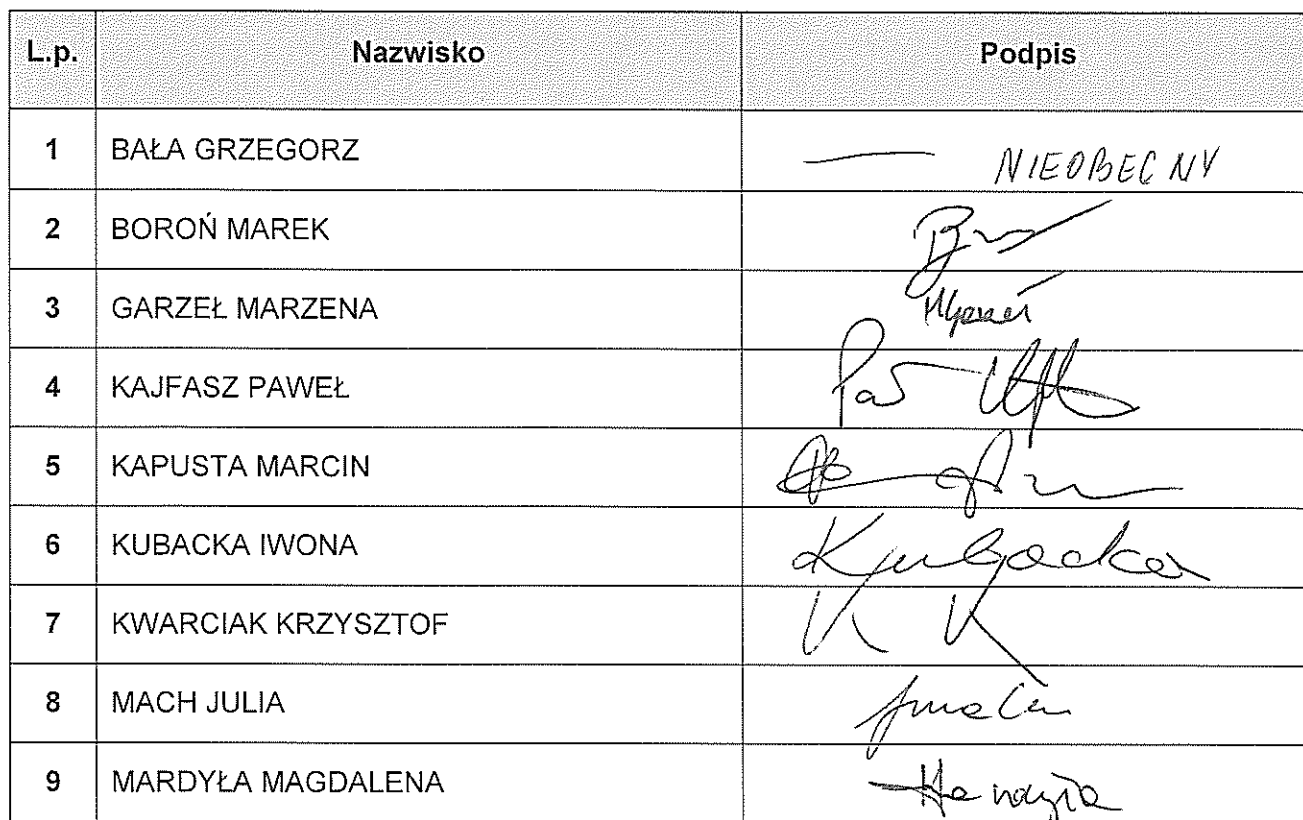 L.p. Nazwisko Podpis
1 BAŁA GRZEGORZ — NIEOBECNY
2 BOROŃ MAREK
3 GARZEŁ MARZENA
4 KAJFASZ PAWEŁ
5 KAPUSTA MARCIN
6 KUBACKA IWONA Kubacka
7 KWARCIAK KRZYSZTOF K K
8 MACH JULIA
9 MARDYŁA MAGDALENA